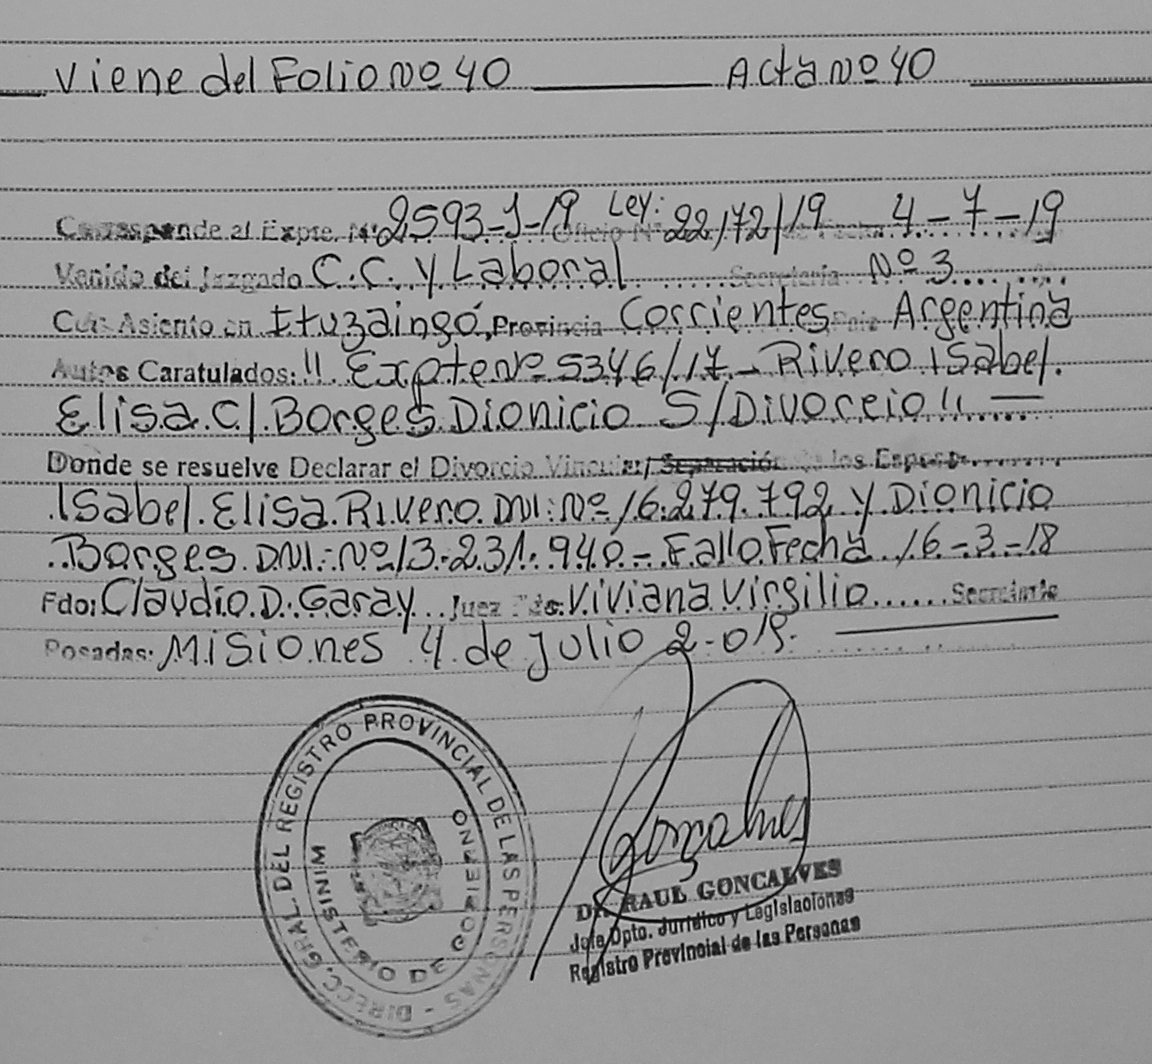 Viene del Folio Nº 40 Acta Nº 40
Corresponde al Expte. Nº 2593-J-19 Ley: 22172/19 Oficio Nº de Fecha 4-7-19
Venido del Juzgado C.C. y Laboral Secretaria Nº 3
Con Asiento en Ituzaingó, Provincia Corrientes Pais Argentina
Autos Caratulados: " Expte Nº 5346/17 - Rivero Isabel
Elisa C/ Borges Dionicio S/Divorcio"
Donde se resuelve Declarar el Divorcio Vincular/ Separación de los Esposos
Isabel Elisa Rivero DNI: Nº 16.279.792 y Dionicio
Borges DNI: Nº 13.231.940 - Fallo Fecha 16-3-18
Fdo: Claudio D. Garay Juez Fdo: Viviana Virgilio Secretario
Posadas: Misiones 4 de Julio 2.019.
DIRECC. GRAL. DEL REGISTRO PROVINCIAL DE LAS PERSONAS -
MINISTERIO DE GOBIERNO
Goncalves
DR. RAUL GONCALVES
Jefe Dpto. Jurídico y Legislaciones
Registro Provincial de las Personas